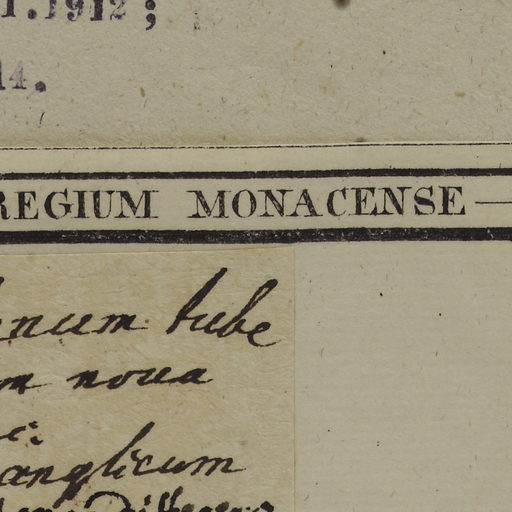 1.1912;
14.
REGIUM MONACENSE —
num tube
m nova
c:
anglicum